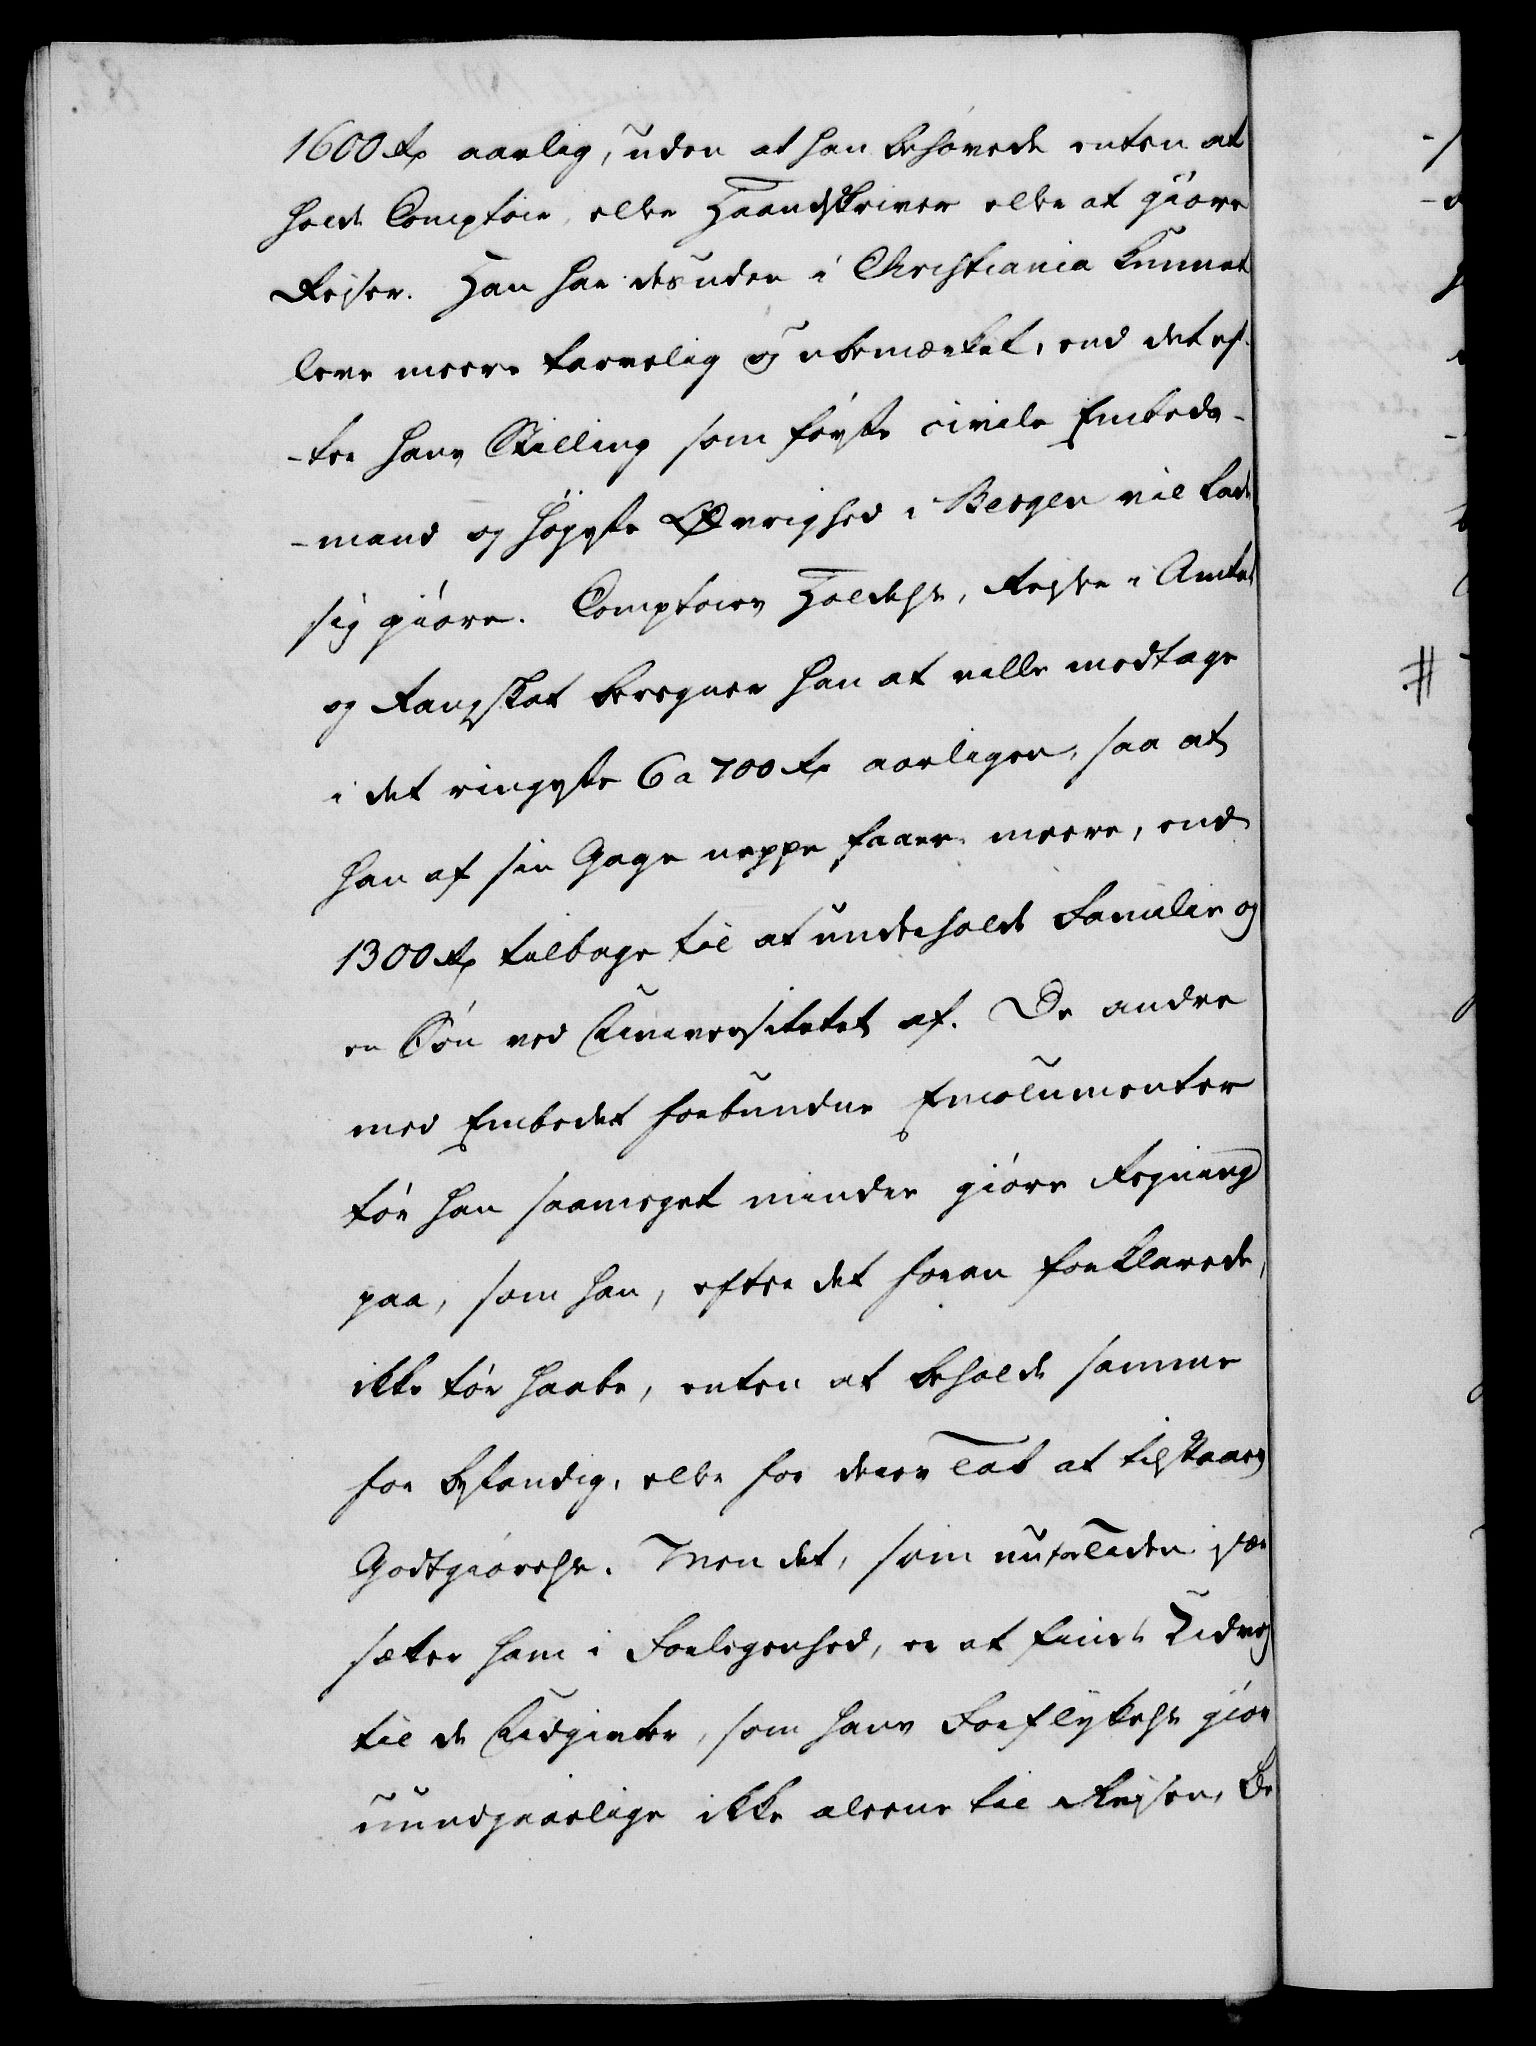 1600 Rd aarlig, uden at han behøvede enten at
holde Comptoir, eller Haandskriver eller at giøre
Reiser. Han har desuden i Christiania kunnet
leve meere tarvelig og ubemærket, end det ef-
-ter hans Stilling som første civile Embeds-
-mand og høyeste Øvrighed i Bergen vil lade
sig giøre. Comptoirs Holdelse, Reyser i Amtet
og Rangskat beregner han at ville medtage
i det ringeste 6 a 700 Rd aarligen, saa at
han af sin Gage neppe faaer meere, end
1300 Rd tilbage til at underholde Familie og
en Søn ved Universitetet af. De andre
med Embedet forbundne Emolumenter
tør han saameget mindre giøre Regning
paa, som han, efter det foran forklarede,
ikke tør haabe, enten at beholde samme
for bestandig, eller for deres Tab at tilstaaes
Godtgiørelse. Men det, som nu for Tiden især
sætter ham i Forlegenhed, er at finde Udveg
til de Udgivter, som hans Forflyttelse giør
uundgaaelige ikke aleene til Reisen, Be